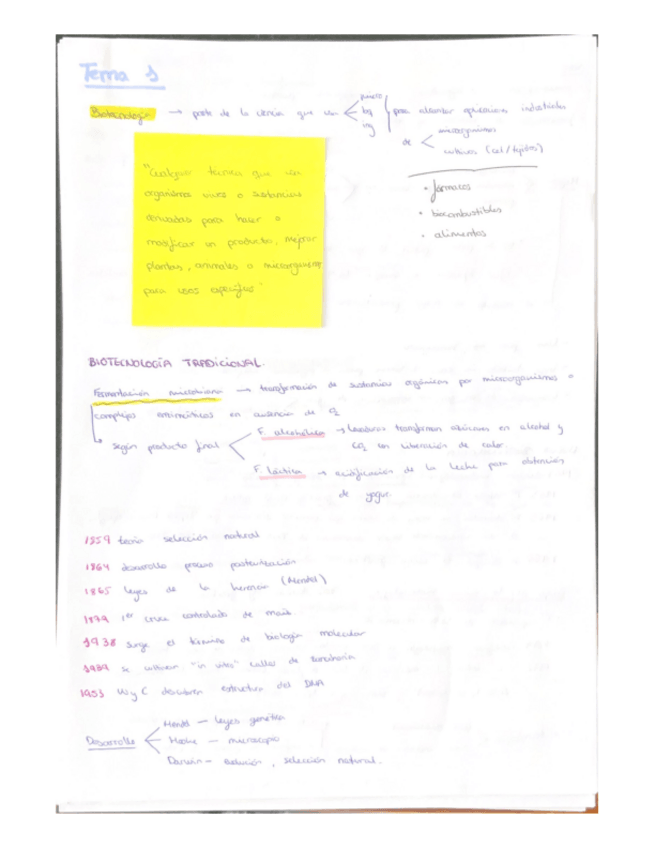 Tema 1
Biotecnología → parte de la ciencia que usa < micro / bq / ing para abordar aplicaciones industriales
de < microorganismos
cultivos (cel / tejidos)
• fármacos
• biocombustibles
• alimentos
"Cualquier técnica que usa
organismos vivos o sustancias
derivadas para hacer o
modificar un producto, mejorar
plantas, animales o microorganismos
para usos específicos"
BIOTECNOLOGÍA TRADICIONAL.
Fermentación microbiana → transformación de sustancias orgánicas por microorganismos o
complejos enzimáticos en ausencia de O2
↳ según producto final < F. alcohólica → levaduras transforman azúcares en alcohol y
CO2 con liberación de calor
F. láctica → acidificación de la leche para obtención
de yogur.
1859 teoría selección natural
1864 desarrollo proceso pasteurización
1865 leyes de la herencia (Mendel)
1879 1er cruce controlado de maíz
1938 surge el término de biología molecular
1939 se cultivan "in vitro" callos de zanahoria
1953 W y C descubren estructura del DNA
Desarrollo < Mendel — leyes genética
Hooke — microscopio
Darwin — evolución, selección natural.